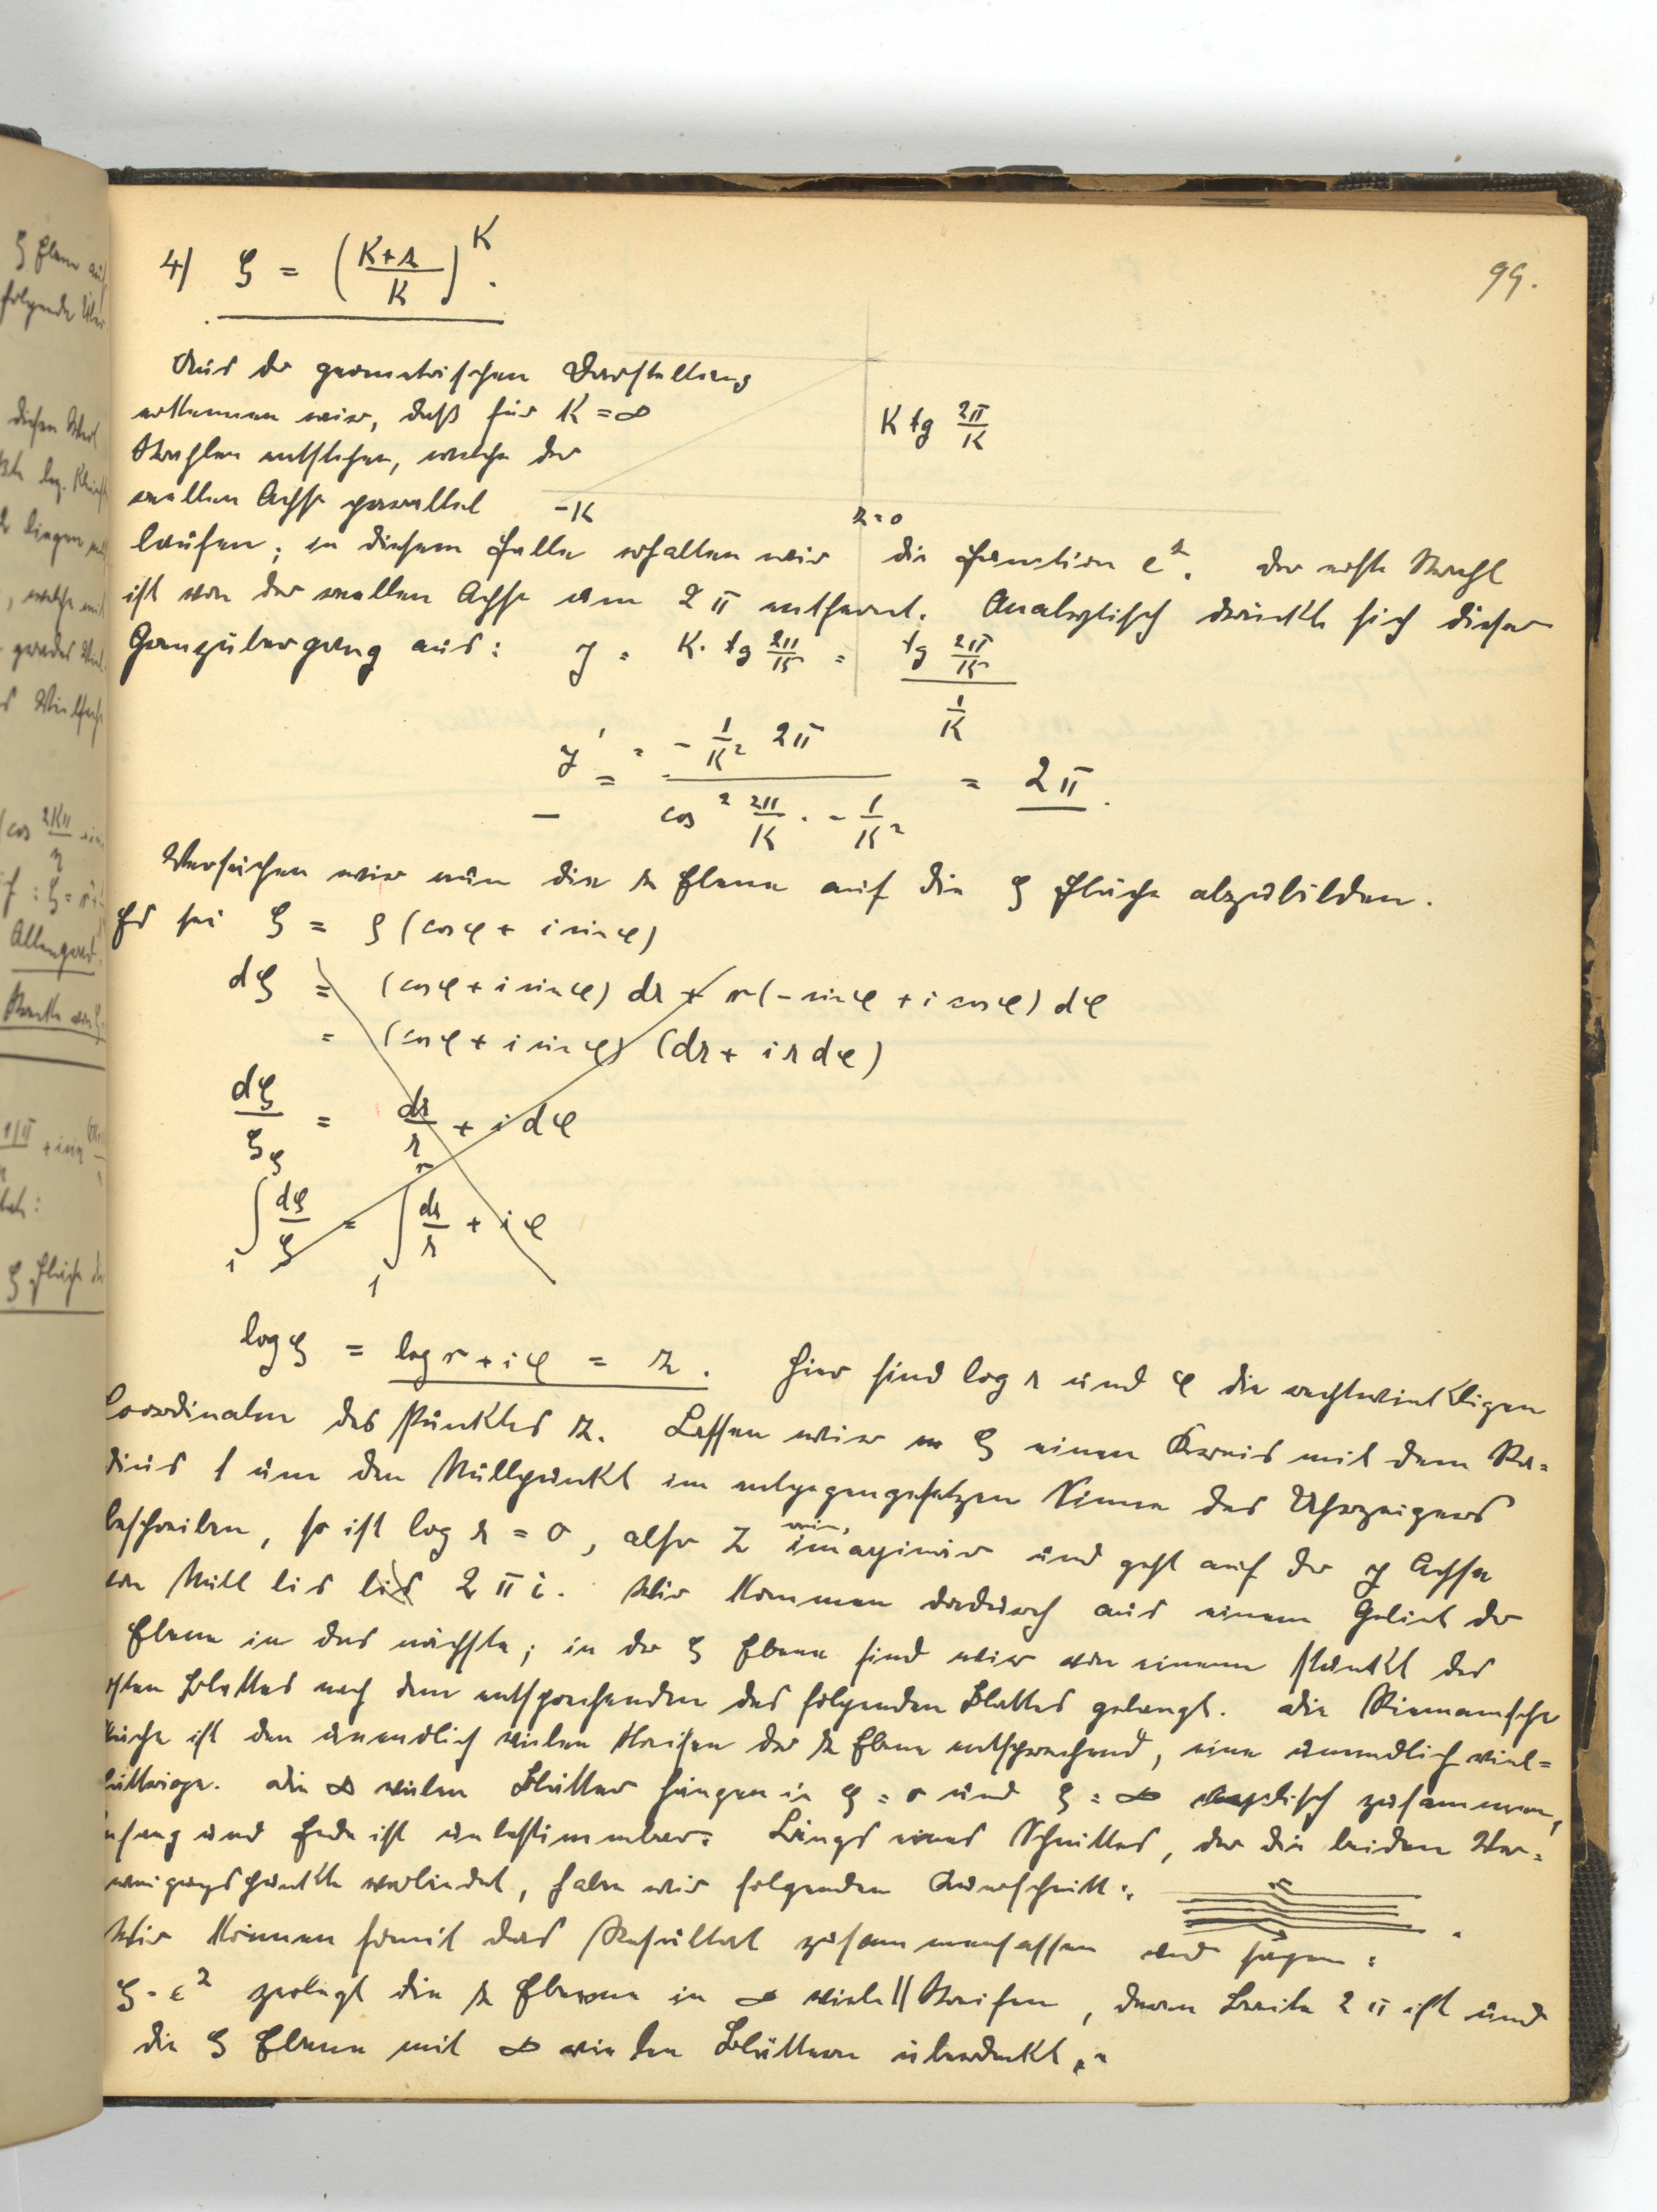 99.
4) ζ = ((K+z)/K)^K.
Aus der geometrischen Darstellung
erkennen wir, daß für K = ∞
Strahlen entstehen, welche der
reellen Achse parallel
K tg 2π/K
-K
z = 0
laufen; in diesem Falle erhalten wir die Function e^z. Der erste Strahl
ist von der reellen Achse um 2π entfernt. Analytisch drückt sich dieser
Grenzübergang aus: y = K. tg 2π/K = tg 2π/K / 1/K
y' = - 1/K² 2π / cos² 2π/K . - 1/K² = 2π.
Versuchen wir nun die z Ebene auf die ζ Fläche abzubilden.
Es sei ζ = ρ (cos φ + i sin φ)
dζ = (cos φ + i sin φ) dr + r (- sin φ + i cos φ) dφ
= (cos φ + i sin φ) (dr + i r dφ)
dζ/ζ = dr/r + i dφ
∫₁^ζ dζ/ζ = ∫₁^r dr/r + i φ
log ζ = log r + i φ = z. Hier sind log r und φ die rechtwinkligen
Coordinaten des Punktes z. Lassen wir ζ einen Kreis mit dem Ra=
dius 1 um den Nullpunkt im entgegengesetzen Sinne des Uhrzeigers
beschreiben, so ist log r = 0, also z rein imaginär und geht auf der y Achse
von Null bis bis 2πi. Wir kommen dadurch aus einem Gebiet der
Ebene in das nächste; in der ζ Ebene sind wir von einem Punkt des
ersten Blattes nach dem entsprechenden des folgenden Blattes gelangt. Die Riemannsche
Fläche ist den unendlich vielen Streifen der z Ebene entsprechend, eine unendlich viel=
blättrige. Die ∞ vielen Blätter hängen in ζ = 0 und ζ = ∞ zusammen,
Anfang und Ende ist unbestimmbar. Längs eines Schnittes, der die beiden Ver=
zweigungspunkte verbindet, haben wir folgenden Querschnitt:
Wir können somit das Resultat zusammenfassen und sagen:
ζ = e^z zerlegt die z Ebene in ∞ viele || Streifen, deren Breite 2π ist und
die ζ Ebene mit ∞ vielen Blättern überdeckt.